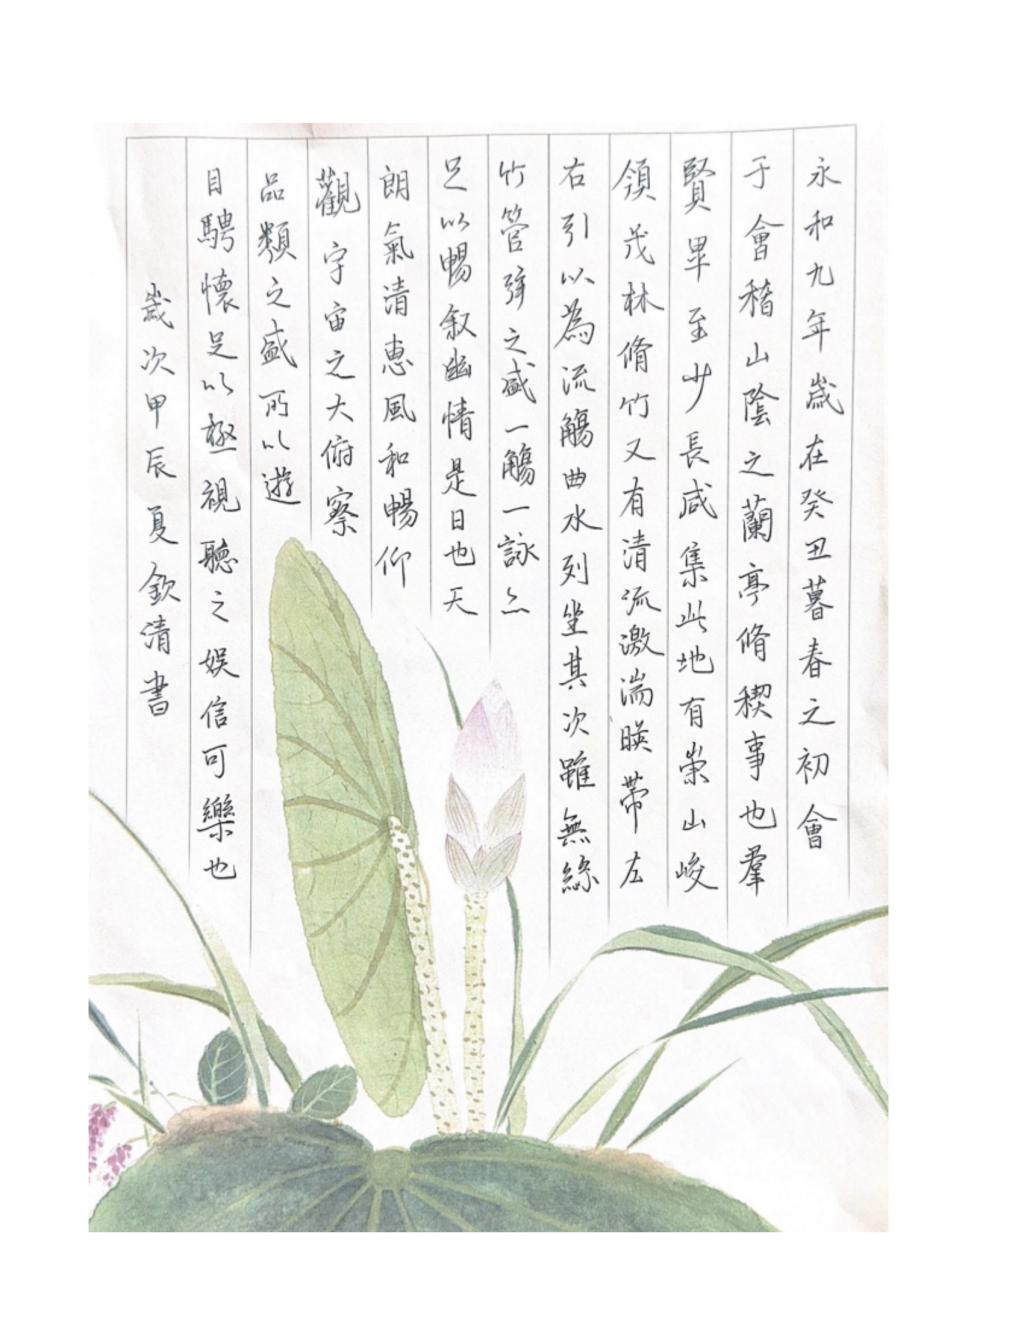 永和九年歲在癸丑暮春之初會
于會稽山陰之蘭亭脩稧事也羣
賢畢至少長咸集此地有崇山峻
領茂林脩竹又有清流激湍暎帶左
右引以為流觴曲水列坐其次雖無絲
竹管弦之盛一觴一詠亦
足以暢叙幽情是日也天
朗氣清惠風和暢仰
觀宇宙之大俯察
品類之盛所以遊
目騁懷足以極視聽之娛信可樂也
歲次甲辰夏欽清書